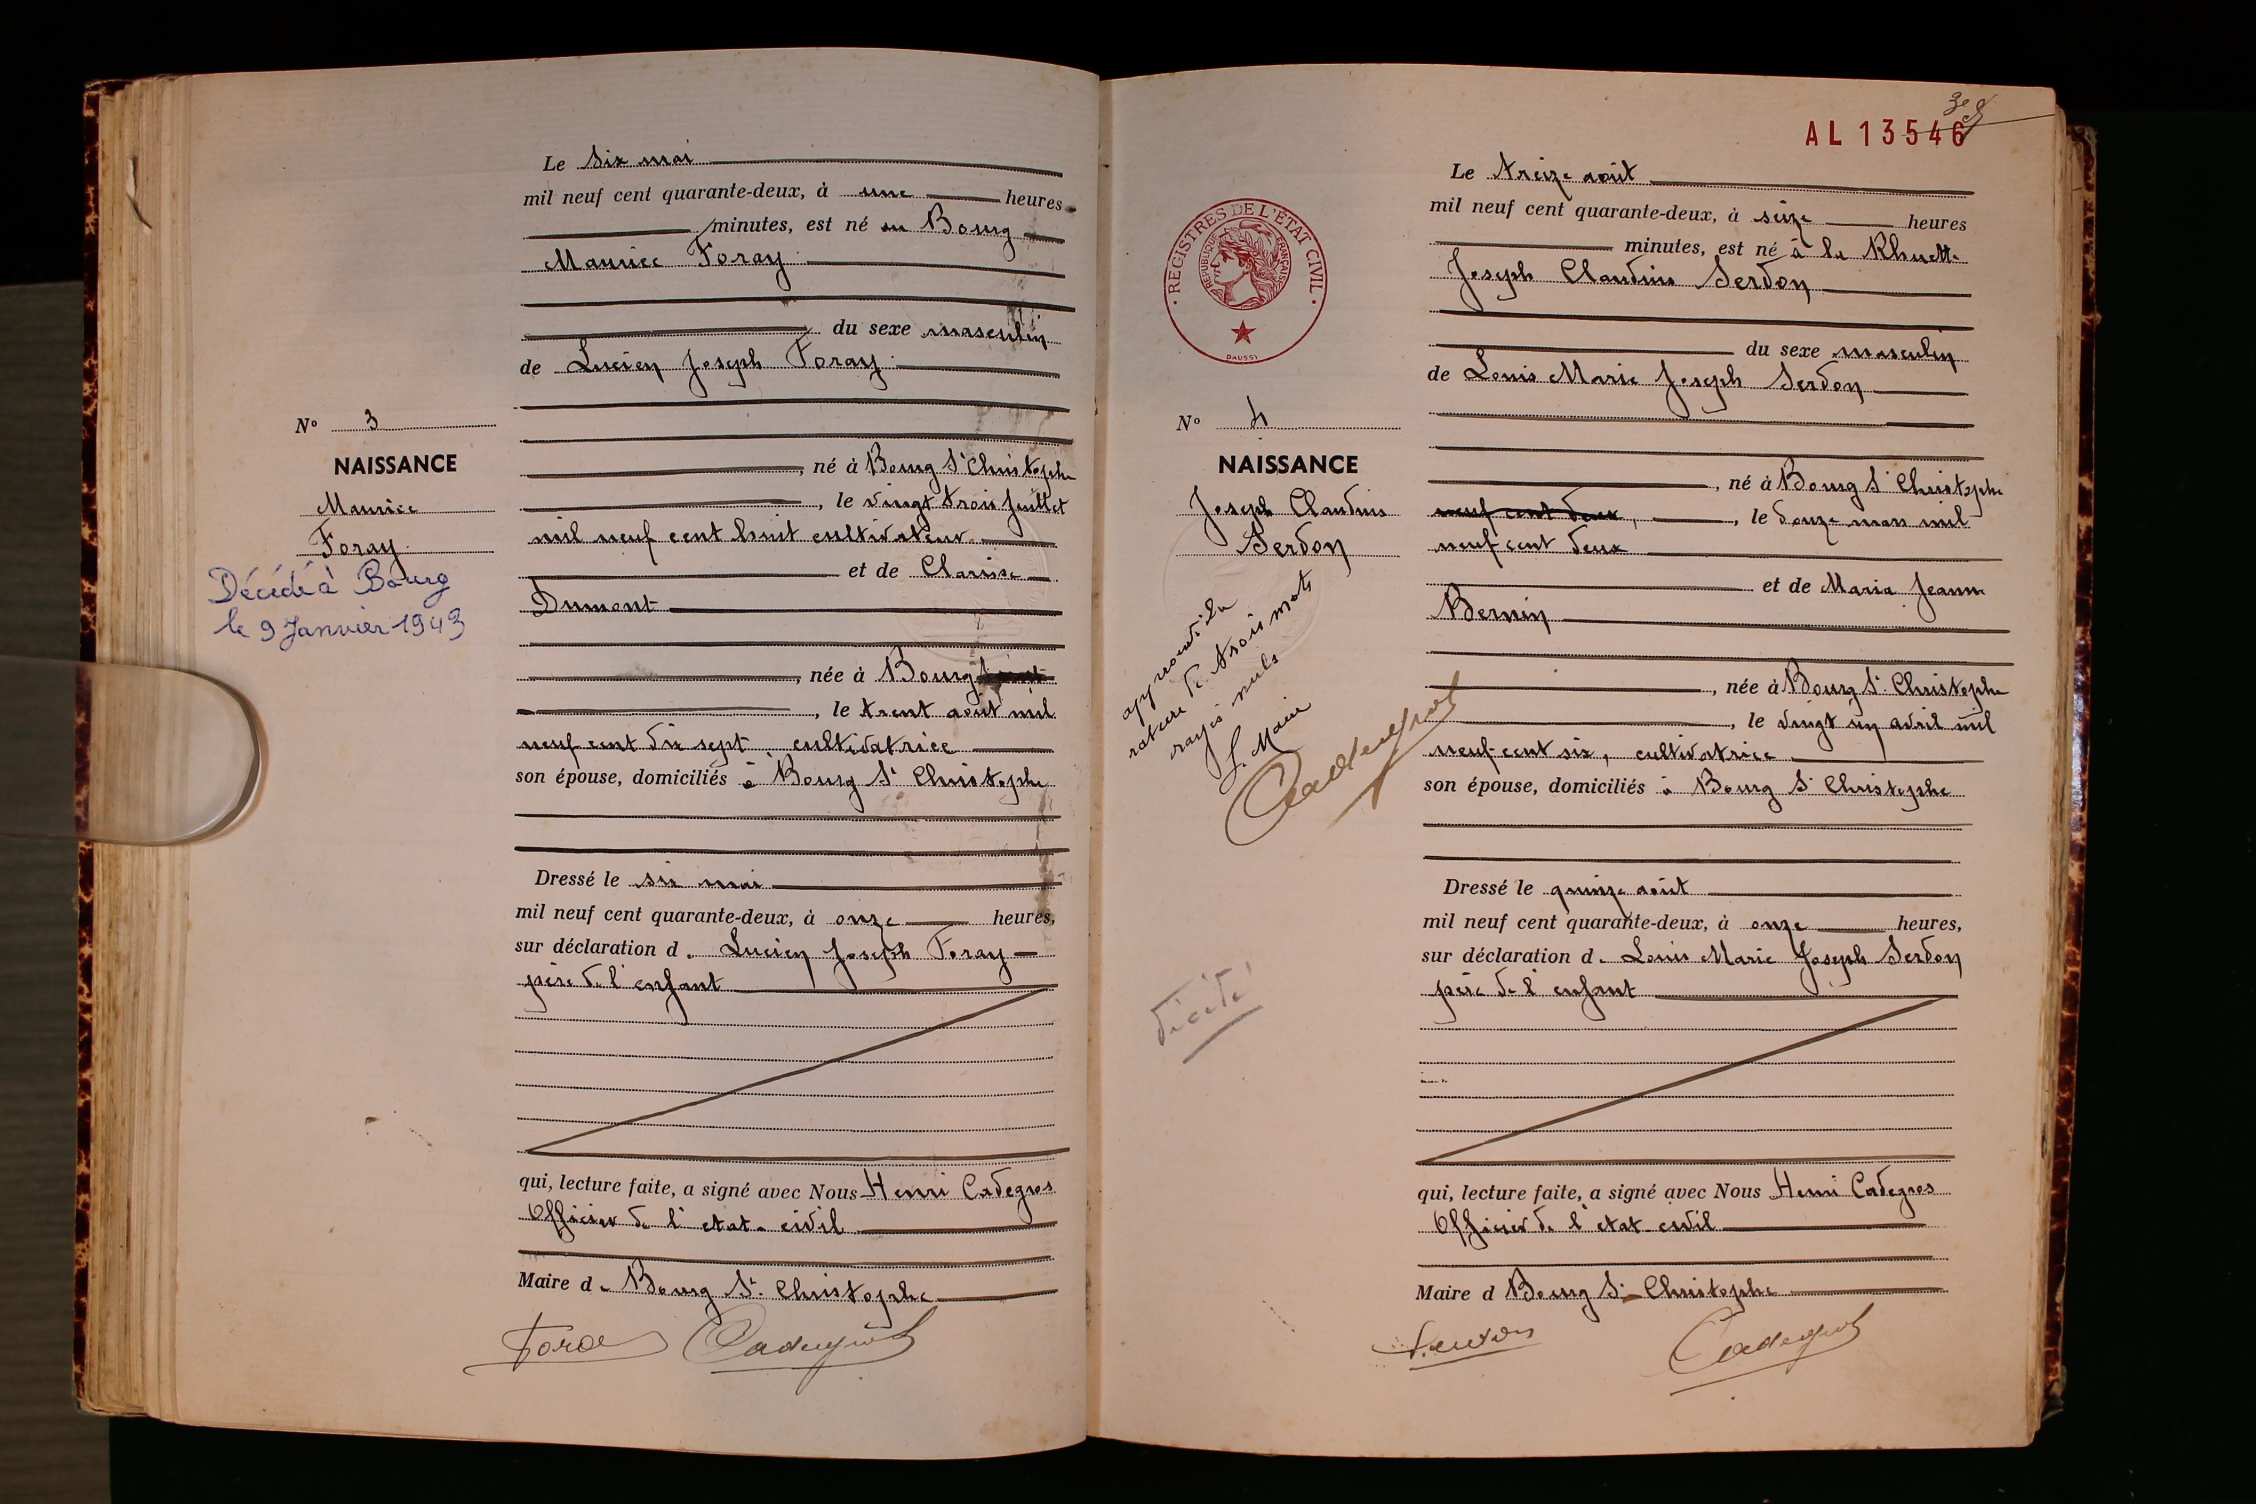 Le Six mai
mil neuf cent quarante-deux, à une heures
minutes, est né au Bourg
Maurice Foray
du sexe masculin
de Lucien Joseph Foray
N° 3
NAISSANCE
Maurice
Foray
Décédé à Bourg
le 9 Janvier 1943
, né à Bourg St Christophe
, le vingt trois Juillet
mil neuf cent huit cultivateur
et de Clarisse
Dumont
, née à Bourg
, le trent août mil
neuf cent dix sept cultivatrice
son épouse, domiciliés à Bourg St Christophe
Dressé le six mai
mil neuf cent quarante-deux, à onze heures,
sur déclaration d. Lucien Joseph Foray
père de l'enfant
qui, lecture faite, a signé avec Nous Henri Cadegros
Officier de l'etat-civil
Maire de Bourg St. Christophe
Foray Cadegros
AL 13546
REGISTRES DE L'ÉTAT CIVIL
RÉPUBLIQUE FRANÇAISE
DAUSSY
Le treize août
mil neuf cent quarante-deux, à seize heures
minutes, est né à la
Joseph Claudius Serdon
du sexe masculin
de Louis Marie Joseph Serdon
N° 4
NAISSANCE
Joseph Claudius
Serdon
approuvé la
rature de trois mots
rayés nuls
L. Maire
Cadegros
décédé
, né à Bourg St Christophe
neuf cent deux, , le douze mars mil
neuf cent deux
et de Maria Jeanne
Bernin
, née à Bourg St. Christophe
, le vingt un avril mil
neuf cent six, cultivatrice
son épouse, domiciliés à Bourg St Christophe
Dressé le quinze août
mil neuf cent quarante-deux, à onze heures,
sur déclaration d. Louis Marie Joseph Serdon
père de l'enfant
qui, lecture faite, a signé avec Nous Henri Cadegros
Officier de l'etat-civil
Maire d Bourg St-Christophe
Serdon Cadegros